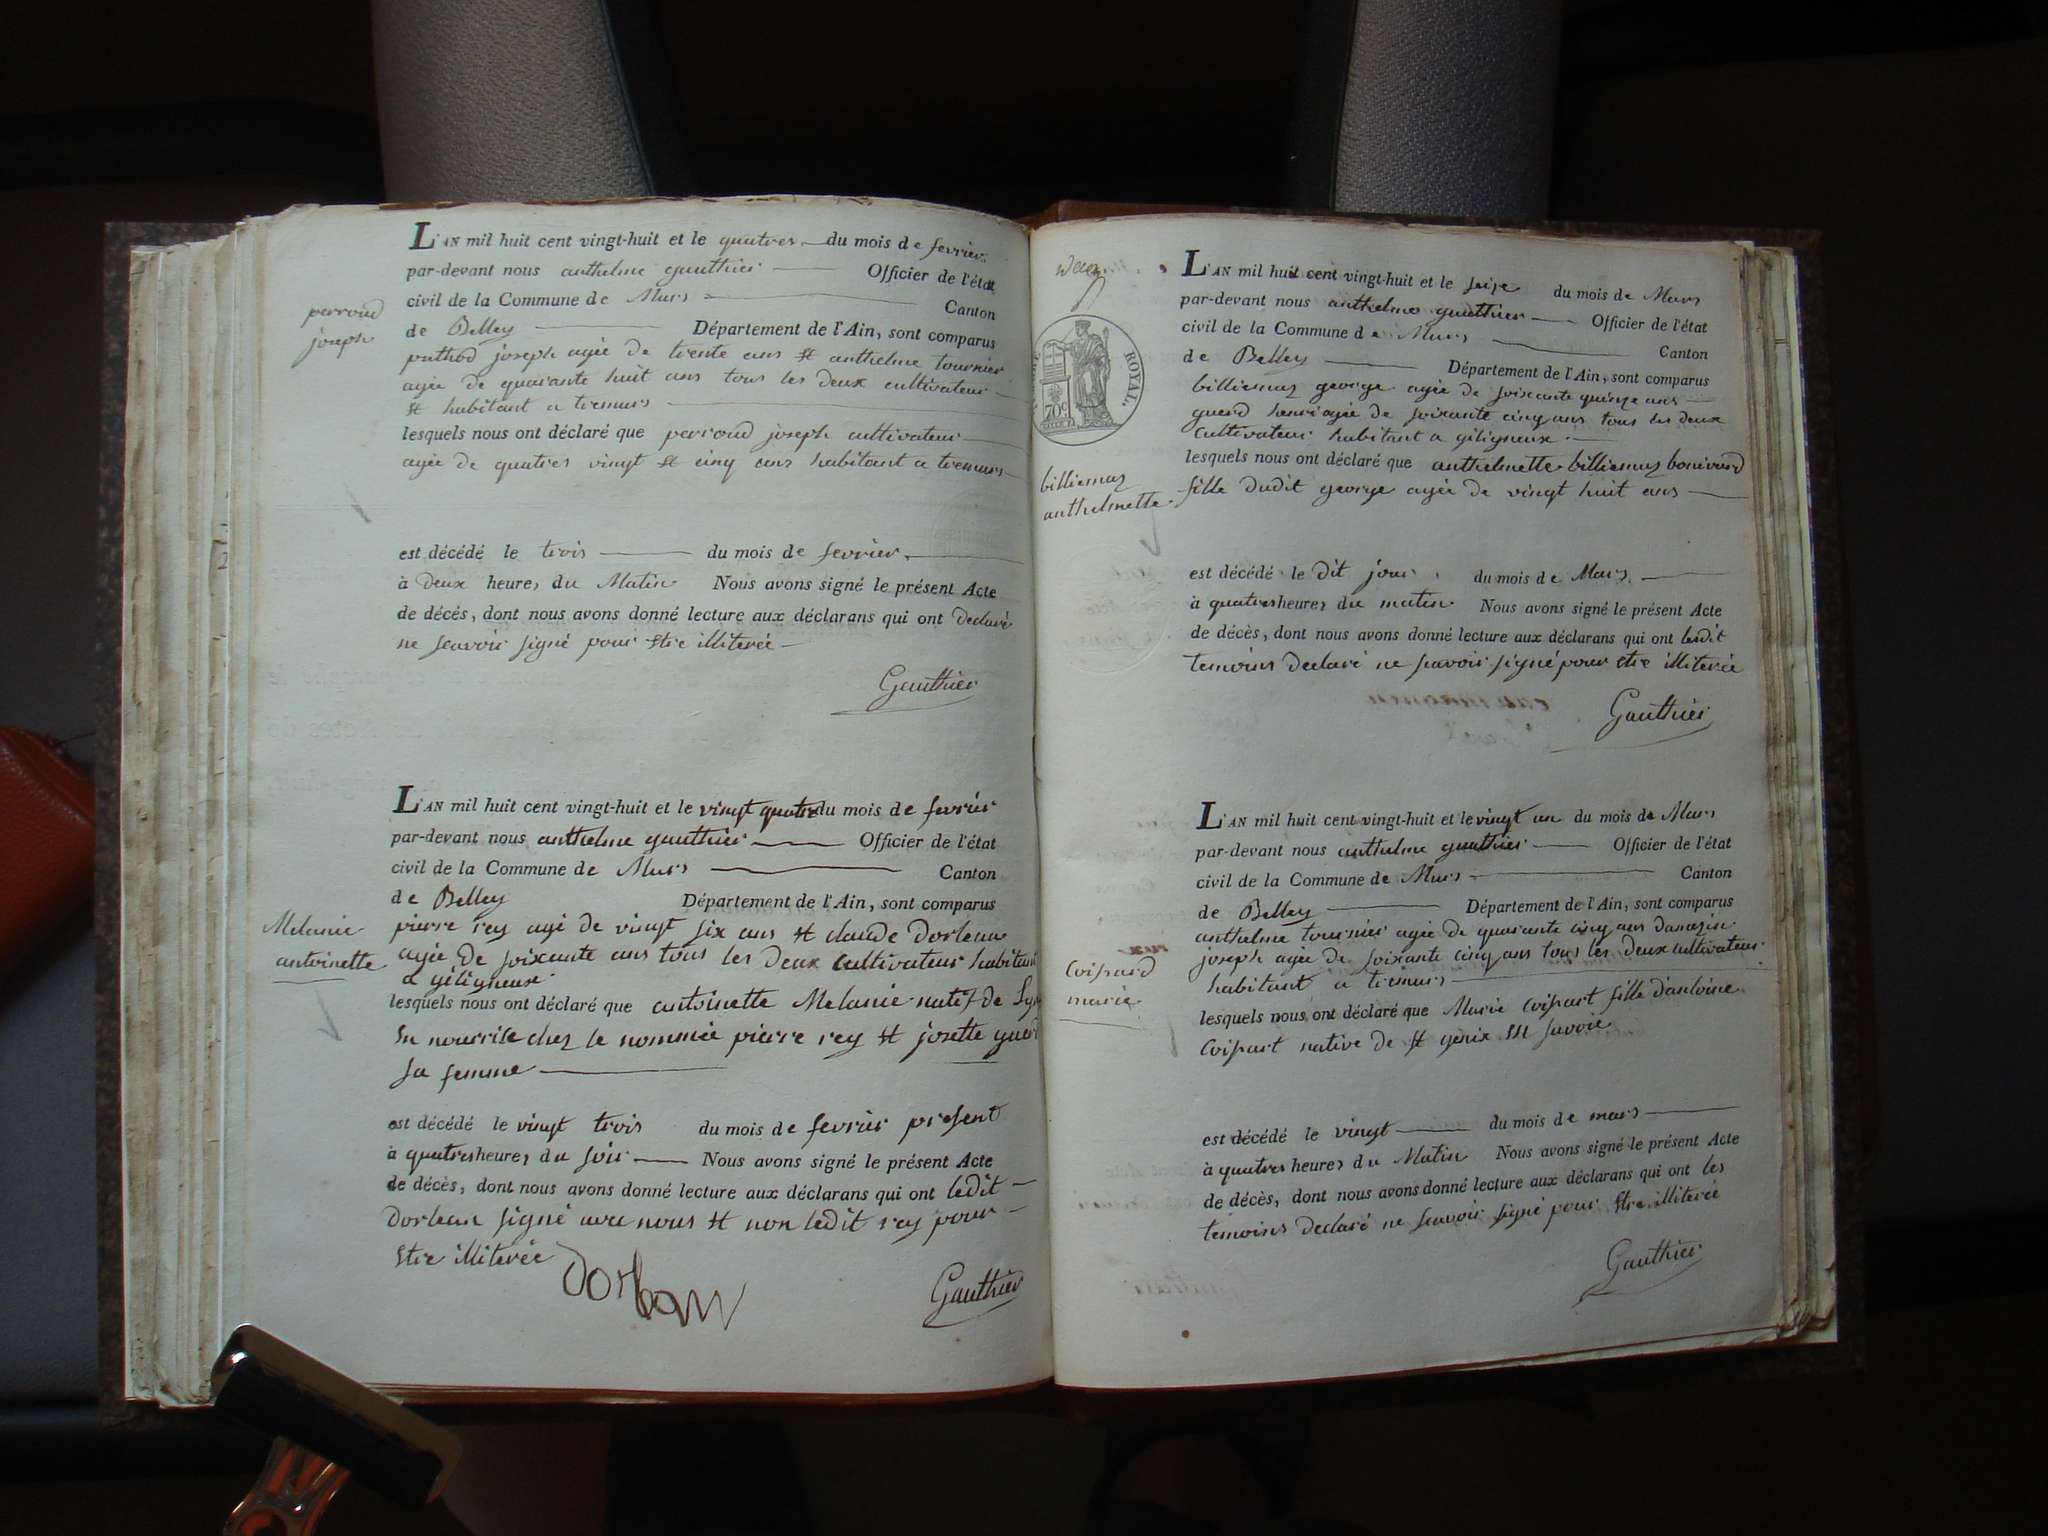 perroud
joseph
L'AN mil huit cent vingt-huit et le quatres du mois de fevrier
par-devant nous anthelme gauthier Officier de l'état
civil de la Commune de Murs Canton
de Belley Département de l'Ain, sont comparus
puthod joseph agée de trente ans et anthelme tournier
agée de quarante huit ans tous les deux cultivateur
et habitant a tremurs
lesquels nous ont déclaré que perroud joseph cultivateur
agée de quatres vingt et cinq ans habitant a tremurs
est décédé le trois du mois de fevrier
à deux heures du Matin Nous avons signé le présent Acte
de décès, dont nous avons donné lecture aux déclarans qui ont declaré
ne scavoir signé pour etre illiterée
Gauthier
Melanie
antoinette
L'AN mil huit cent vingt-huit et le vingt quatre du mois de fevrier
par-devant nous anthelme gauthier Officier de l'état
civil de la Commune de Murs Canton
de Belley Département de l'Ain, sont comparus
pierre rey agé de vingt six ans et claude Dorlean
agée de soixante ans tous les deux cultivateur habitant
a giligneux
lesquels nous ont déclaré que antoinette Melanie natif de
en nourrise chez le nommée pierre rey et josette
sa femme
est décédé le vingt trois du mois de fevrier present
à quatres heures du soir Nous avons signé le présent Acte
de décès, dont nous avons donné lecture aux déclarans qui ont ledit
Dorlean signé avec nous et non ledit rey pour
etre illiterée
Dorlean
Gauthier
ROYAL.
70c
billiemaz
anthelmette
L'AN mil huit cent vingt-huit et le seize du mois de Mars
par-devant nous anthelme gauthier Officier de l'état
civil de la Commune de Murs Canton
de Belley Département de l'Ain, sont comparus
billiemaz george agée de soixante quinze ans
guerd henri agée de soixante cinq ans tous les deux
cultivateur habitant a giligneux
lesquels nous ont déclaré que anthelmette billiemaz bonivard
fille dudit george agée de vingt huit ans
est décédé le dit jour du mois de Mars
à quatres heures du matin Nous avons signé le présent Acte
de décès, dont nous avons donné lecture aux déclarans qui ont lesdit
temoins declaré ne scavoir signé pour etre illiterée
Gauthier
Coissard
marie
L'AN mil huit cent vingt-huit et le vingt un du mois de Mars
par-devant nous anthelme gauthier Officier de l'état
civil de la Commune de Murs Canton
de Belley Département de l'Ain, sont comparus
anthelme tournier agée de quarante cinq ans Dancezin
joseph agée de soixante cinq ans tous les deux cultivateur
habitant a tremurs
lesquels nous ont déclaré que Marie Coissart fille dantoine
Coissart native de st genix en savoie
est décédé le vingt du mois de mars
à quatres heures du Matin Nous avons signé le présent Acte
de décès, dont nous avons donné lecture aux déclarans qui ont les
temoins declaré ne scavoir signé pour etre illiterée
Gauthier